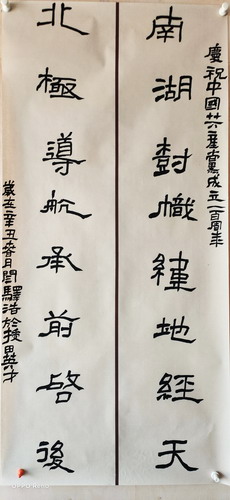 慶祝中國共產黨成立一百周年
南湖樹幟緯地經天
北極導航承前啓後
歲在辛丑春月閆驛浩於